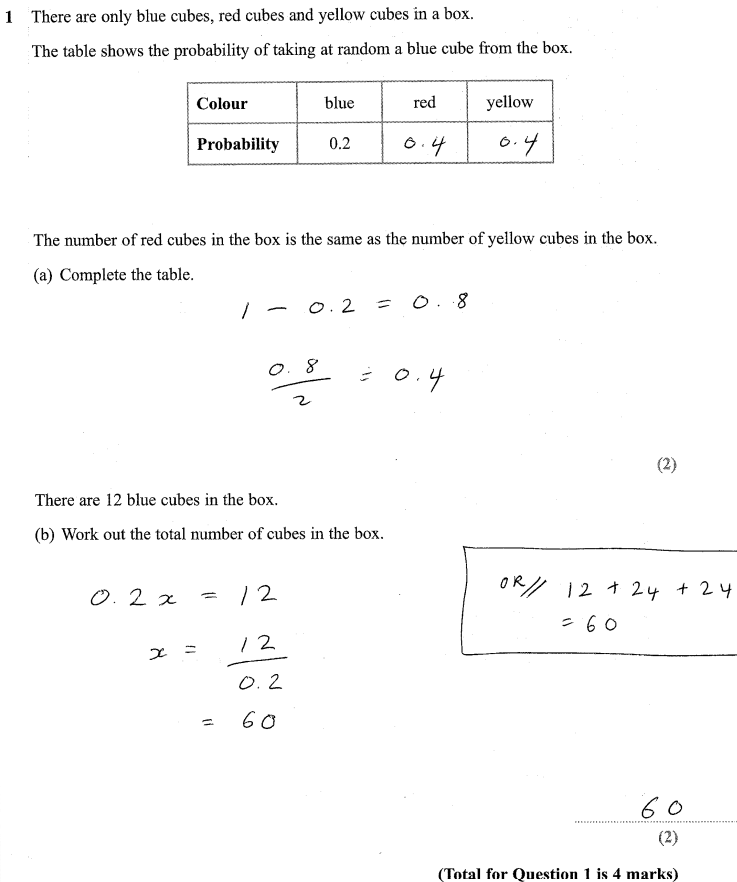 1 There are only blue cubes, red cubes and yellow cubes in a box.
The table shows the probability of taking at random a blue cube from the box.
Colour blue red yellow
Probability 0.2 0.4 0.4
The number of red cubes in the box is the same as the number of yellow cubes in the box.
(a) Complete the table.
1 - 0.2 = 0.8
0.8
2
= 0.4
(2)
There are 12 blue cubes in the box.
(b) Work out the total number of cubes in the box.
0.2x = 12
x = 12
0.2
= 60
OR// 12 + 24 + 24
= 60
60
(2)
(Total for Question 1 is 4 marks)